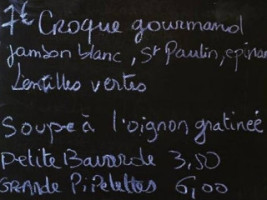 7€ Croque gourmand
jambon blanc, St Paulin, epinar
Lentilles vertes
Soupe à l'oignon gratinée
Petite Bavarde 3,50
GRANDE Pipelettes 6,00